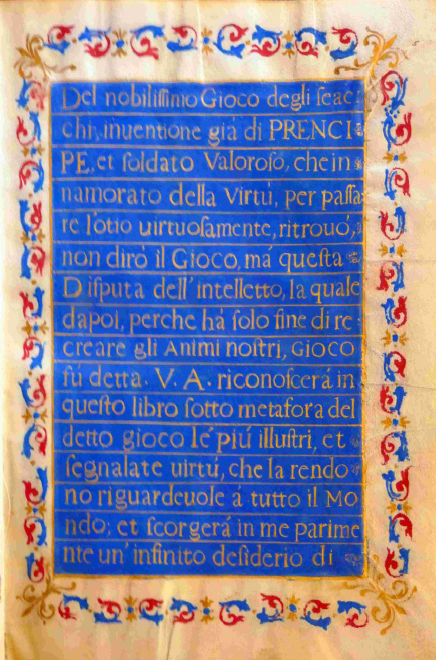 Del nobiliſſimo Gioco degli ſcac
chi, inuentione giá di PRENCI
PE, et ſoldato Valoroſo, che in
namorato della Virtú, per paſſa
re l'otio uirtuoſamente, ritrouó,
non diró il Gioco, má queſta
Diſputa dell'intelletto, la quale
dapoi, perche há ſolo fine di re
creare gli Animi noſtri, GIOCO
fú detta. V. A. riconoſcerá in
queſto libro ſotto metafora del
detto gioco le piú illuſtri, et
ſegnalate uirtú, che la rendo
no riguardeuole á tutto il MO
ndo; et ſcorgerá in me parime
nte un'infinito deſiderio di